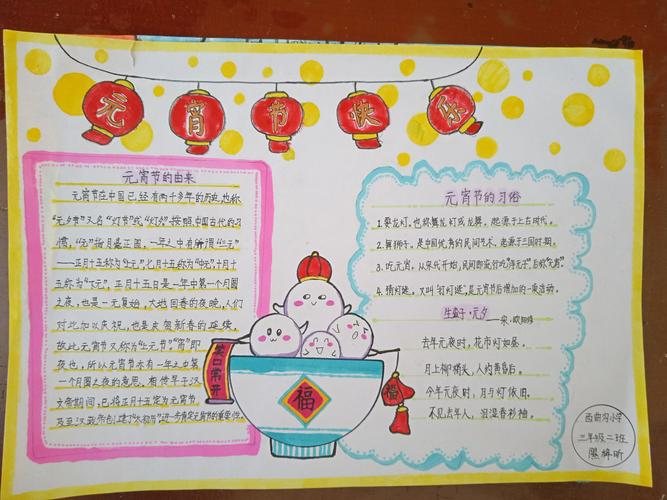 元宵节快乐
元宵节的由来
元宵节在中国已经有两千多年的历史,也称
"元夕节"又名"灯节"或"灯火",按照中国古代的习
惯,"元"指月亮正圆,一年之中有所谓"三元"
——正月十五称为"上元",七月十五称为"中元",十月十
五称为"下元"。正月十五日是一年中第一个月圆
之夜,也是一元复始,大地回春的夜晚,人们
对此加以庆祝,也是庆贺新春的延续。
故此元宵节又称为"上元节","宵"即
夜也,所以元宵节本有一年之中第
一个月圆之夜的意思。相传早于汉
文帝期间,已将正月十五定为元宵节,
笑口常开
福
福
元宵节的习俗
1.耍龙灯,也称舞龙灯或龙舞。起源于上古时代。
2.舞狮子,是中国优秀的民间艺术,起源于三国时期。
3.吃元宵。从宋代开始,民间即流行吃"浮元子"后称"元宵"。
4.猜灯谜。又叫"打灯谜",是元宵节后增加的一项活动。
生查子·元夕
——宋·欧阳修
去年元夜时,花市灯如昼。
月上柳梢头,人约黄昏后。
今年元夜时,月与灯依旧。
不见去年人,泪湿春衫袖。
小学
三年级二班